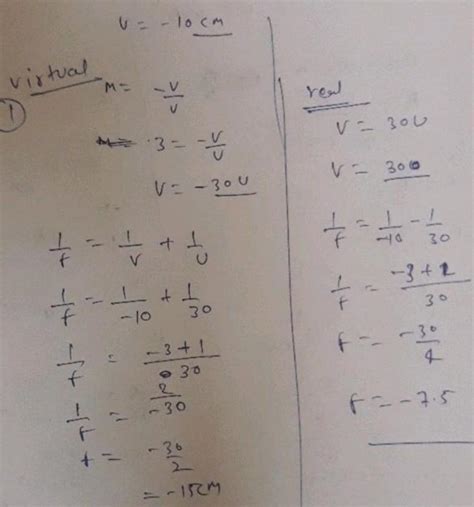 v = -10 cm
virtual
1
M = -v/v
3 = -v/v
v = -30u
1/f = 1/v + 1/u
1/f = 1/-10 + 1/30
1/f = -3+1/30
1/f = 2/-30
f = -30/2
= -15cm
real
v = 30u
v = 300
1/f = 1/-10 - 1/30
1/f = -3+2/30
f = -30/4
f = -7.5